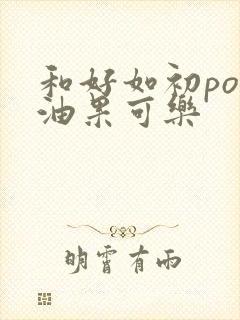 和好如初po
油果可樂
明霄有雨